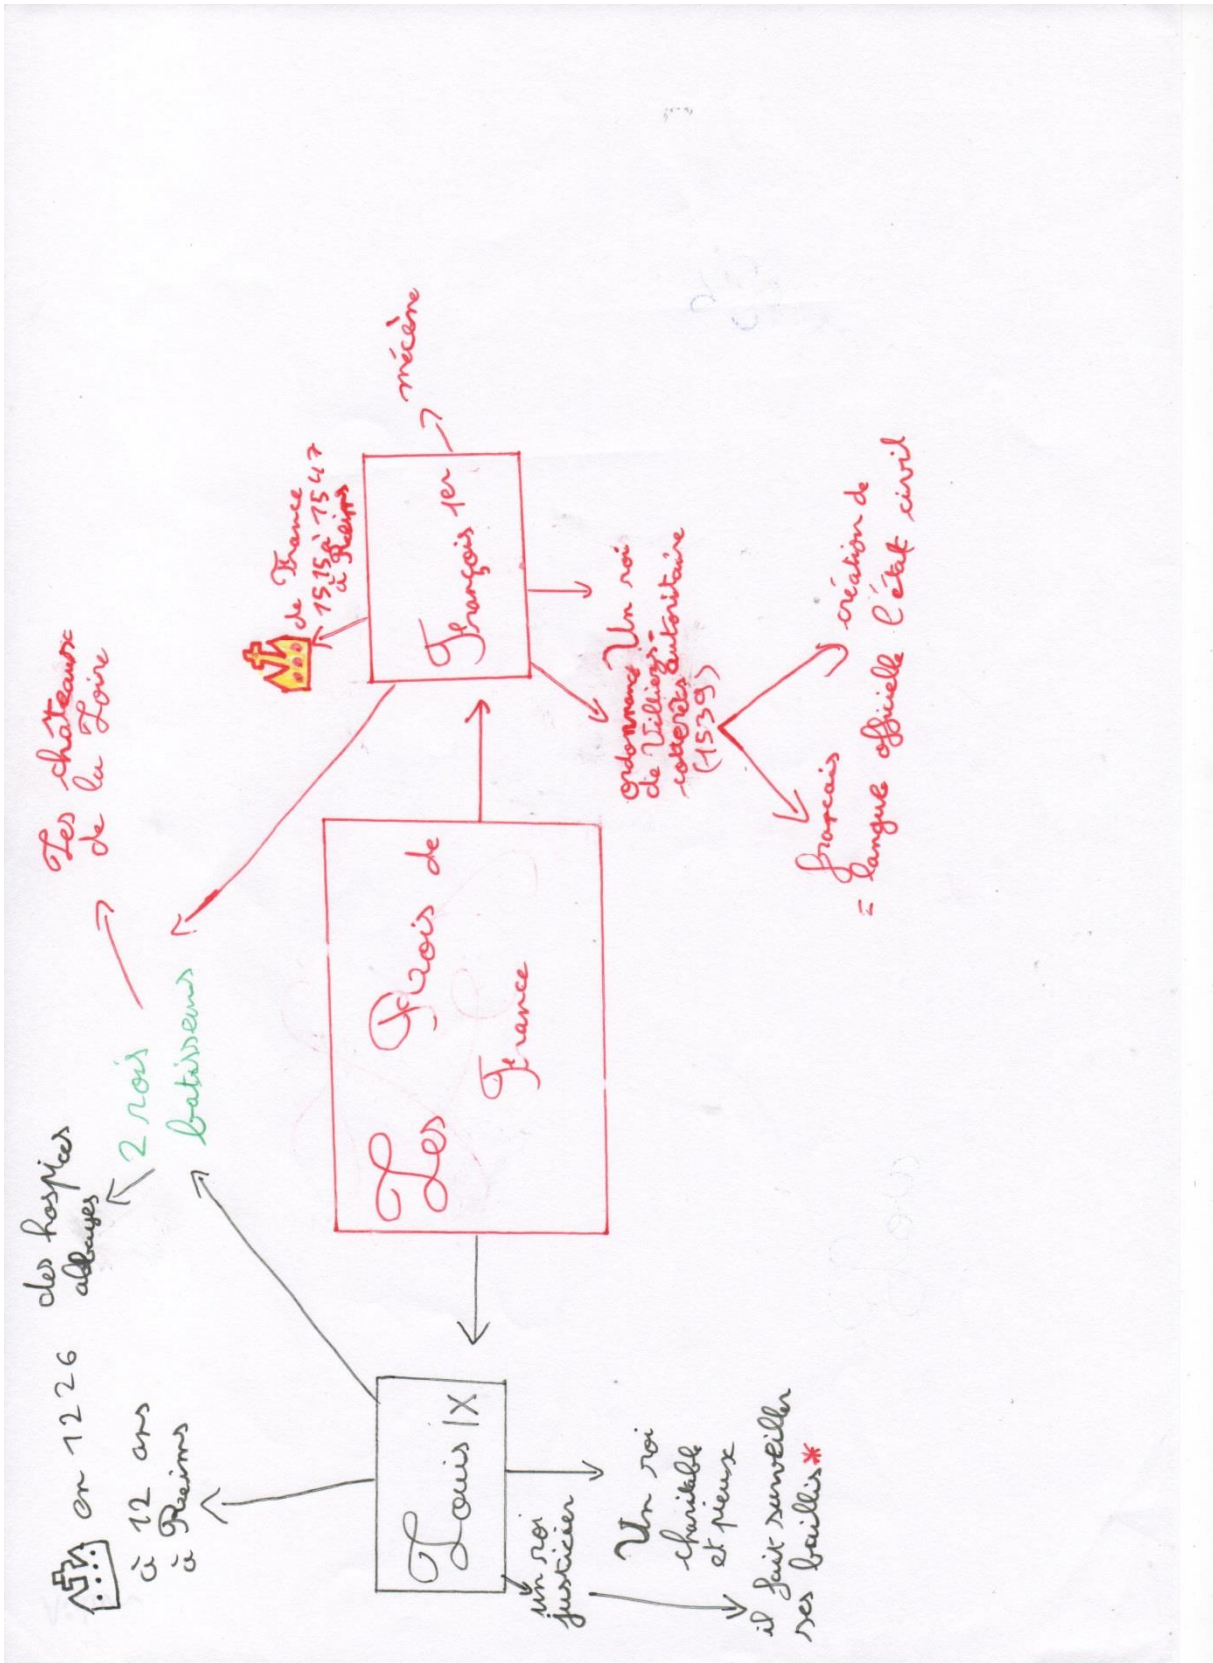 Les Rois de
France
Louis IX
en 1226
à 12 ans
à Reims
des hospices
abbayes
2 rois
batisseurs
Les châteaux
de la Loire
un roi
justicier
il fait surveiller
ses baillis*
Un roi
charitable
et pieux
François 1er
de France
1515 à 1547
à Reims
mécène
Un roi
autoritaire
ordonnance
de Villiers-
cotterêts
(1539)
français
= langue officielle
création de
l'état civil